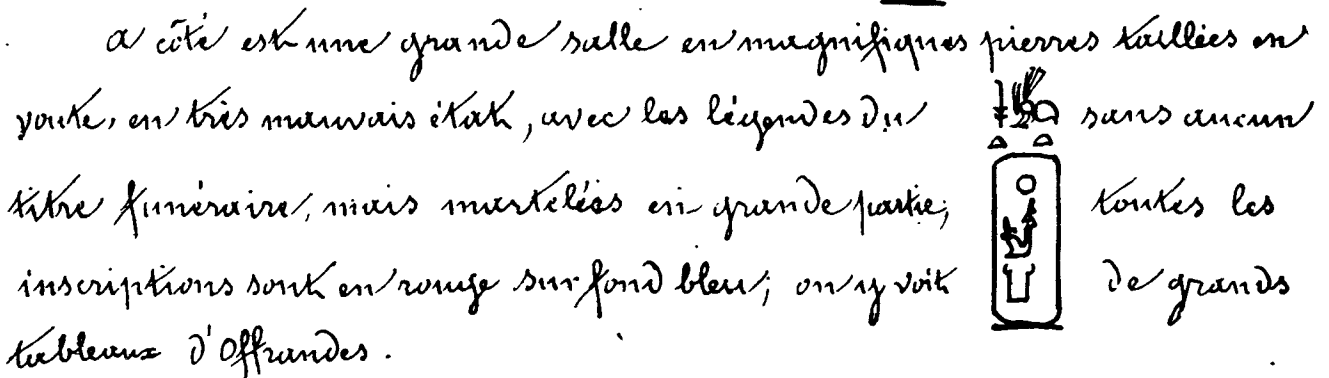 A côté est une grande salle en magnifiques pierres taillées en
voute, en très mauvais état, avec les légendes du 𓇓𓏏𓆤𓏏 sans aucun
titre funéraire, mais martelées en grande partie; toutes les
inscriptions sont en rouge sur fond bleu; on y voit de grands
tableaux d'Offrandes.